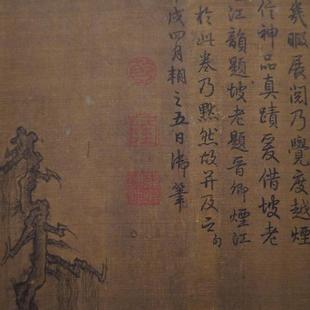 幾暇展閱乃覺度越煙
信神品真蹟爰借坡老
江韻題坡老題晉卿煙江
於此卷乃默然故并及之
戌四月相之五日御筆